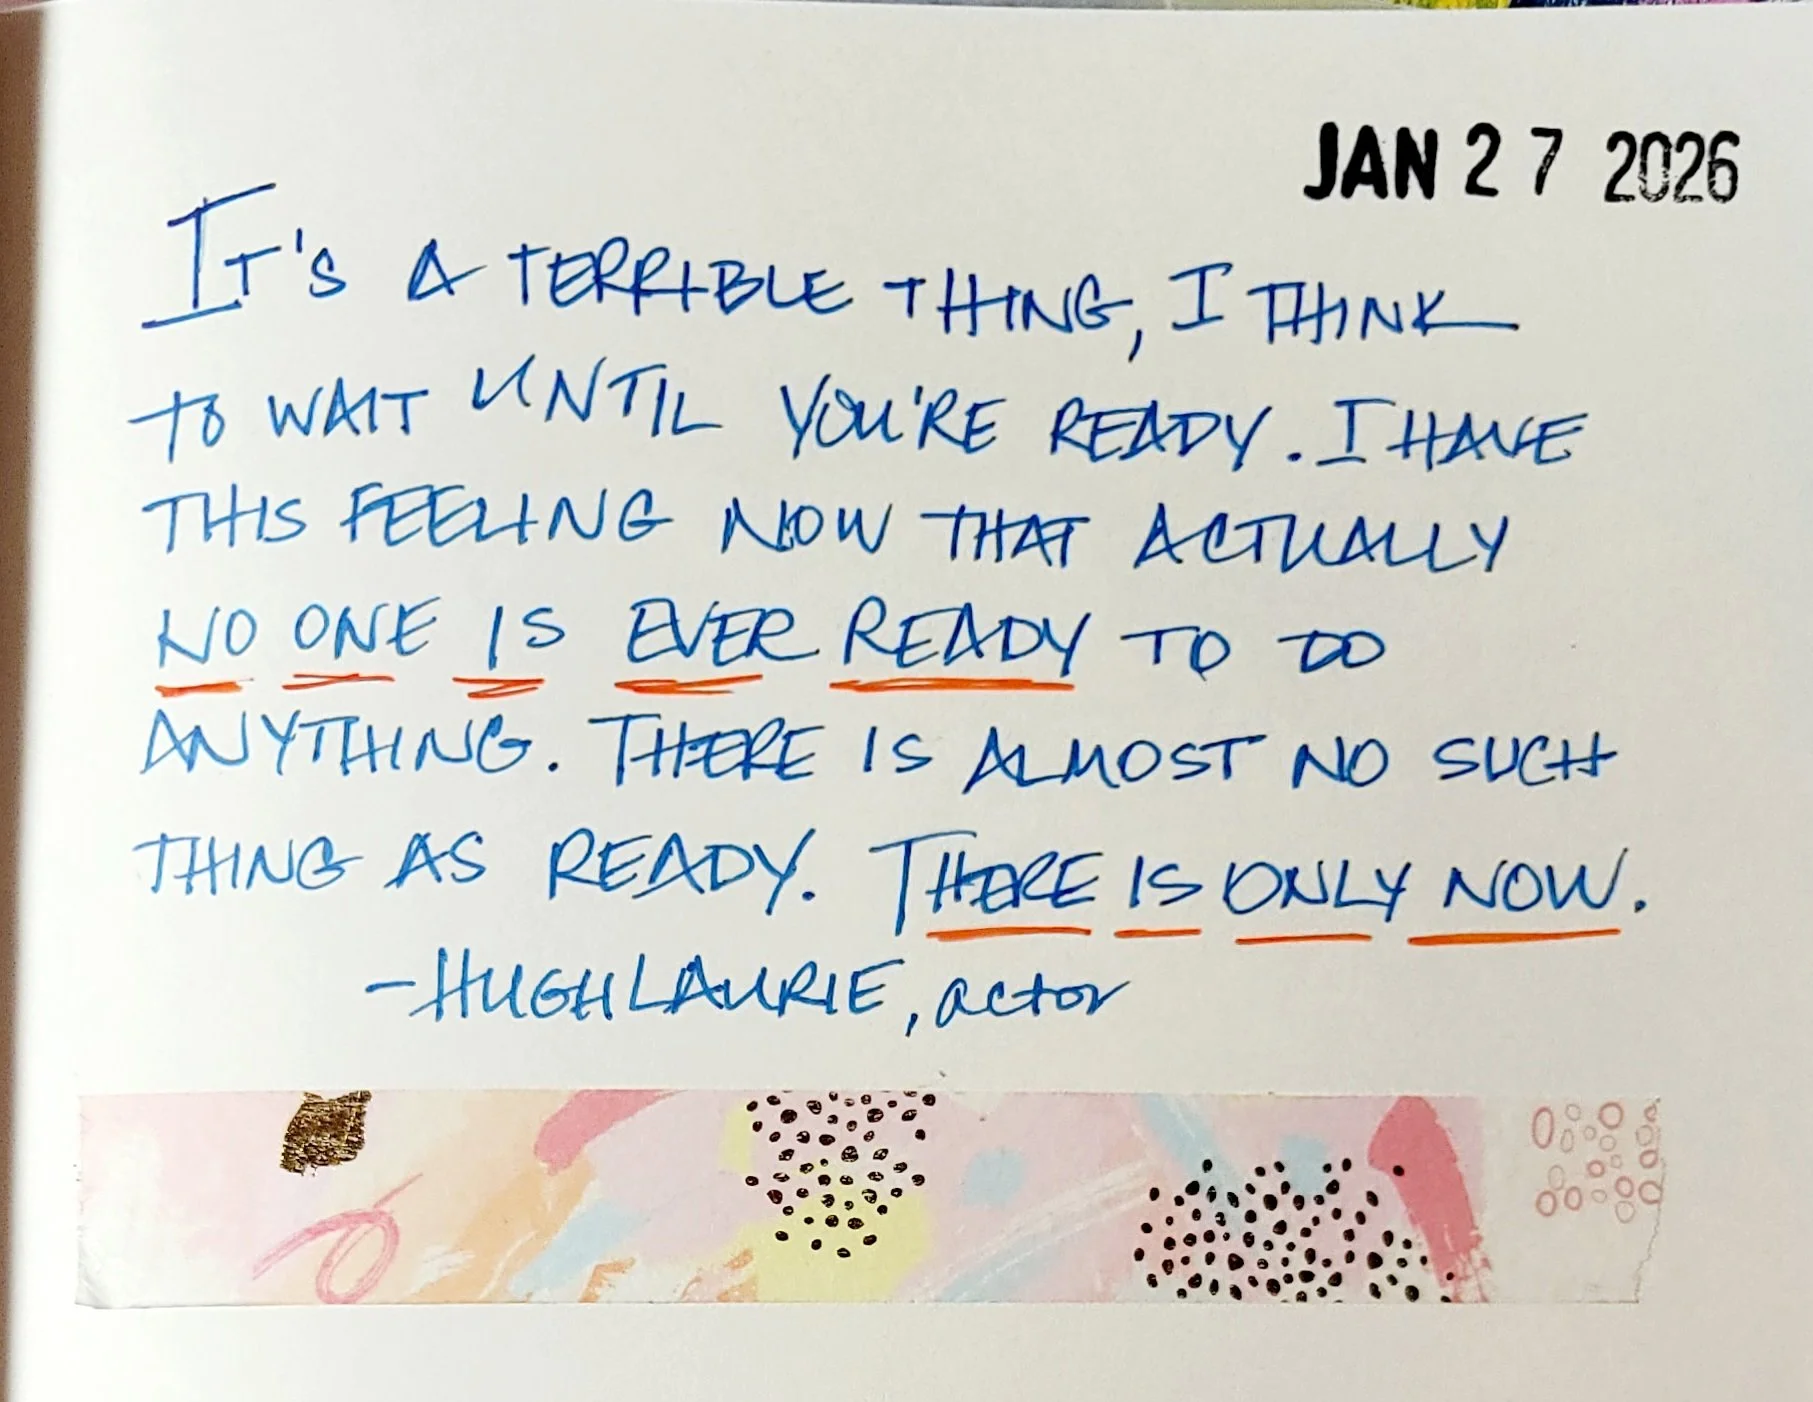 JAN 27 2026
IT'S A TERRIBLE THING, I THINK
TO WAIT UNTIL YOU'RE READY. I HAVE
THIS FEELING NOW THAT ACTUALLY
NO ONE IS EVER READY TO DO
ANYTHING. THERE IS ALMOST NO SUCH
THING AS READY. THERE IS ONLY NOW.
-HUGH LAURIE, actor